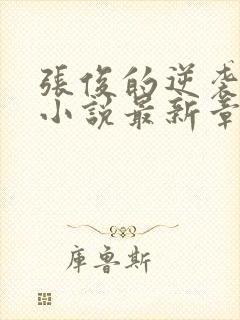 張俊的逆袭
小說最新章
庫魯斯